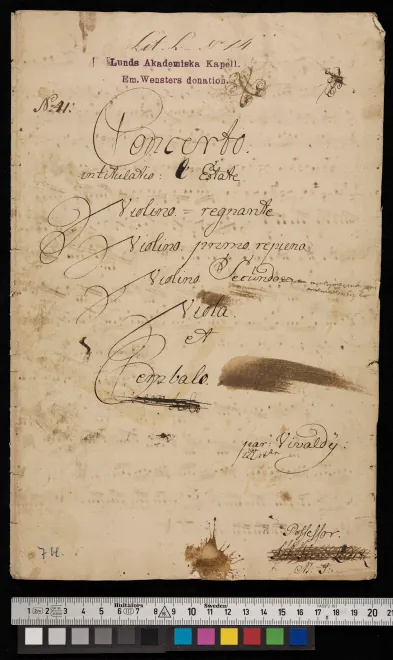 Lit. L. No 14
Lunds Akademiska Kapell.
Em. Wensters donation.
No. 41:
Concerto.
intitulatio: L'Estate
Violino = regnante
Violino primo repieno
Violino Secundo
Viola
et
Cembalo.
par: Vivaldij:
Possessor.
7H.
Hultafors
Sweden
1 2 3 4 5 6 7 8 9 10 11 12 13 14 15 16 17 18 19 20